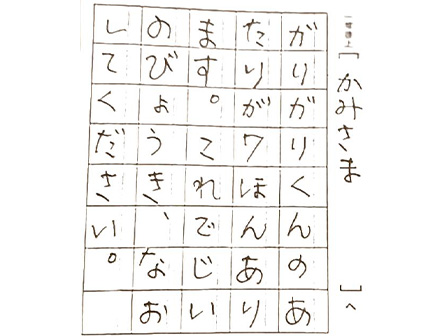 [かみさま]へ
がりがりくんのあ
たりが7ほんあり
ます。これでじい
のびょうき、なお
してください。